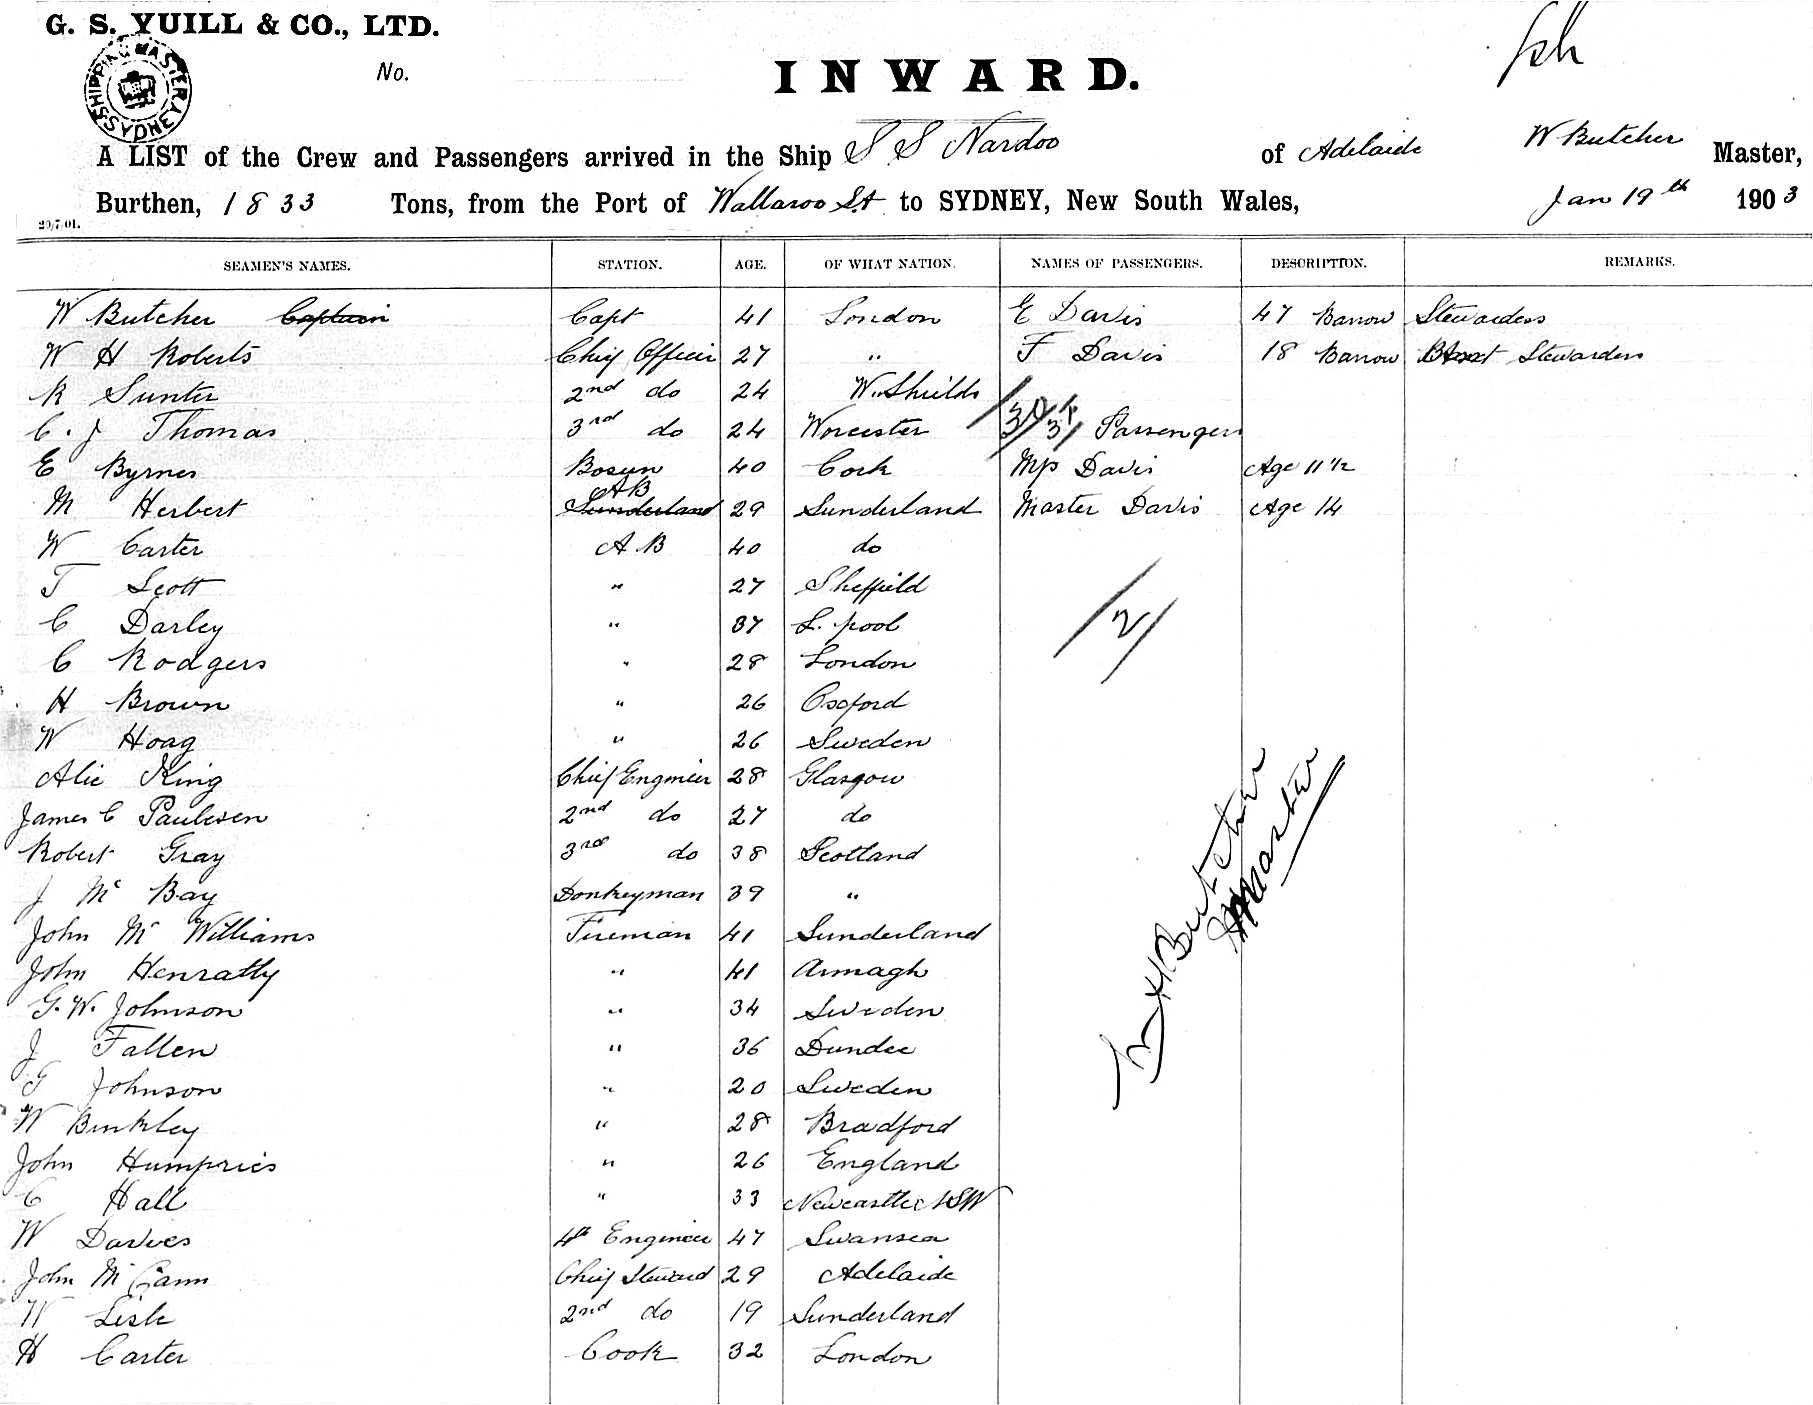 G. S. YUILL & CO., LTD.
SHIPPING MASTER SYDNEY
No.
INWARD.
A LIST of the Crew and Passengers arrived in the Ship S S Nardoo of Adelaide W Butcher Master,
Burthen, 1833 Tons, from the Port of Wallaroo S.A to SYDNEY, New South Wales, Jan 19th 1903
20/7/01.
SEAMEN'S NAMES. STATION. AGE. OF WHAT NATION. NAMES OF PASSENGERS. DESCRIPTION. REMARKS.
W Butcher Captain Capt 41 London E Davis 47 Barrow Stewardess
W H Roberts Chief Officer 27 " F Davis 18 Barrow Stewardess
R Sunter 2nd do 24 W. Shields
C. J Thomas 3rd do 24 Worcester Passengers
E Byrnes Bosun 40 Cork Davis Age 11 1/2
M Herbert Sunderland AB 29 Sunderland Master Davis Age 14
W Carter A B 40 do
T Scott " 27 Sheffield
C Darley " 37 L. pool
C Rodgers " 28 London
H Brown " 26 Oxford
W Hoag " 26 Sweden
Alic King Chief Engineer 28 Glasgow
James C Paulesen 2nd do 27 do
Robert Gray 3rd do 38 Scotland
J Mc Bay Donkeyman 39 "
John Mc Williams Fireman 41 Sunderland
John Henratty " 41 Armagh
G. W. Johnson " 34 Sweden
J Fallen " 36 Dundee
G Johnson " 20 Sweden
W Binkley " 28 Bradford
John Humpries " 26 England
C Hall " 33 Newcastle NSW
W Davies 4th Engineer 47 Swansea
John McCann Chief Steward 29 Adelaide
W Lisle 2nd do 19 Sunderland
H Carter Cook 32 London
/2/
W H Butcher
Master